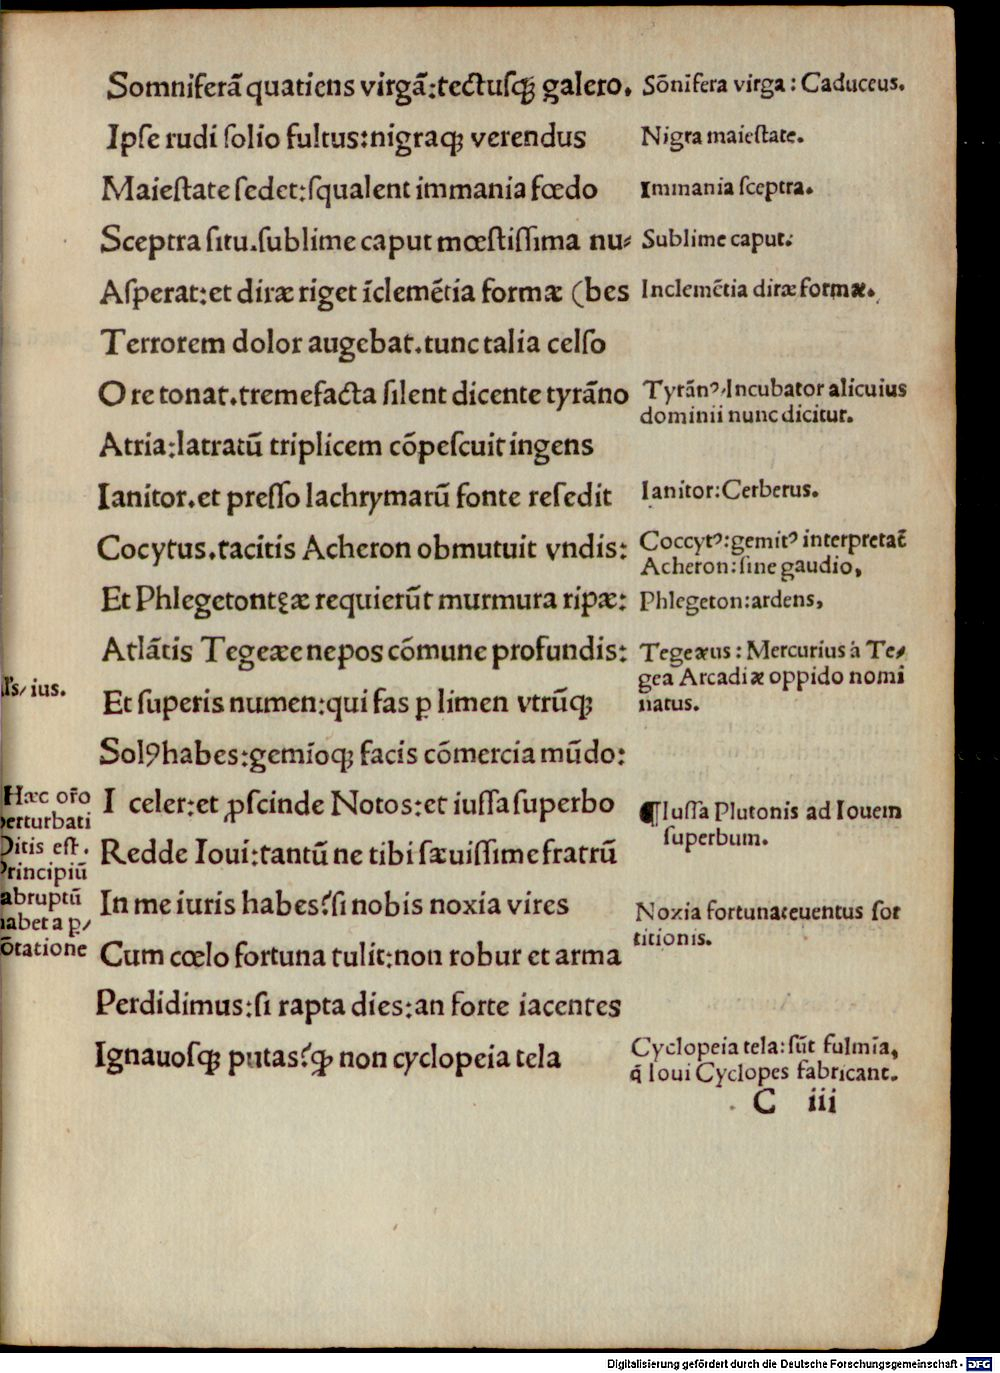 Somniferā quatiens virgā:tectuſqꝫ galero.
Ipſe rudi ſolio fultus:nigraqꝫ verendus
Maieſtate ſedet:ſqualent immania fœdo
Sceptra ſitu.ſublime caput mœſtiſſima nu⸗
Aſperat:et diræ riget īclemētia formæ (bes
Terrorem dolor augebat.tunc talia celſo
Ore tonat.tremefacta ſilent dicente tyrāno
Atria:latratū triplicem cōpeſcuit ingens
Ianitor.et preſſo lachrymarū fonte reſedit
Cocytus.tacitis Acheron obmutuit vndis:
Et Phlegetontęæ requierūt murmura ripæ:
Atlātis Tegeæe nepos cōmune profundis:
Et ſuperis numen:qui fas ꝑ limen vtrūqꝫ
Solꝰ habes:gemīoqꝫ facis cōmercia mūdo:
I celer:et ꝓſcinde Notos:et iuſſa ſuperbo
Redde Ioui:tantū ne tibi ſæuiſſime fratrū
In me iuris habes?ſi nobis noxia vires
Cum cœlo fortuna tulit:non robur et arma
Perdidimus:ſi rapta dies:an forte iacentes
Ignauoſqꝫ putas?ꝙ non cyclopeia tela
Sōnifera virga : Caduceus.
Nigra maieſtate.
Immania ſceptra.
Sublime caput.
Inclemētia diræ formæ.
Tyrānꝰ⸝Incubator alicuius
dominii nunc dicitur.
Ianitor:Cerberus.
Coccytꝰ:gemitꝰ interpretat̄
Acheron:ſine gaudio,
Phlegeton:ardens,
Tegeæus : Mercurius à Te⸝
gea Arcadiæ oppido nomi
natus.
¶Iuſſa Plutonis ad Iouem
ſuperbum.
Noxia fortuna:euentus ſor
titionis.
Cyclopeia tela:ſūt fulmīa,
q̄ Ioui Cyclopes fabricant.
C iii
ius.
Hæc oro
perturbati
Ditis eſt.
Principiū
abruptū
habet a p⸝
ōtatione
Digitalisierung gefördert durch die Deutsche Forschungsgemeinschaft - DFG